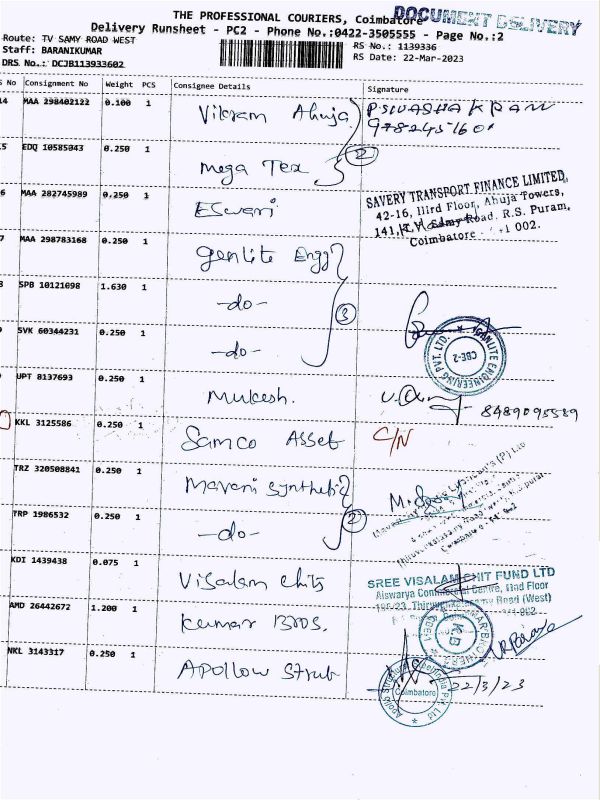 THE PROFESSIONAL COURIERS, Coimbatore
DOCUMENT DELIVERY
Delivery Runsheet - PC2 - Phone No.:0422-3505555 - Page No.:2
Route: TV SAMY ROAD WEST
RS No.: 1139336
Staff: BARANIKUMAR
RS Date: 22-Mar-2023
DRS No.: DCJB113933602
S No Consignment No Weight PCS Consignee Details Signature
14 MAA 298402122 0.100 1 Vikram Ahuja
5 EDQ 10585043 0.250 1 Mega Tex
2
6 MAA 282745989 0.250 1 Eswari
SAVERY TRANSPORT FINANCE LIMITED,
42-16, IIIrd Floor, Ahuja Towers,
141, Samy Road. R.S. Puram,
Coimbatore 002.
7 MAA 298783168 0.250 1 Genlite Engg
8 SPB 10121098 1.630 1 -do-
3
9 SVK 60344231 0.250 1 -do-
GANLITE ENGINEERING PVT. LTD.
CBE-2
UPT 8137693 0.250 1 Mukesh.
8489095589
KKL 3125586 0.250 1 Samco Asset C/N
TRZ 320508841 0.250 1 Mavani Synthetic
2
TRP 1986532 0.250 1 -do-
KDI 1439438 0.075 1 Visalam chits
SREE VISALAM CHIT FUND LTD
Aiswarya Commercial Centre, IInd Floor
Road (West)
AMD 26442672 1.200 1 Kumar Bros.
K.B
NKL 3143317 0.250 1 Apollow Strub
Coimbatore
22/3/23